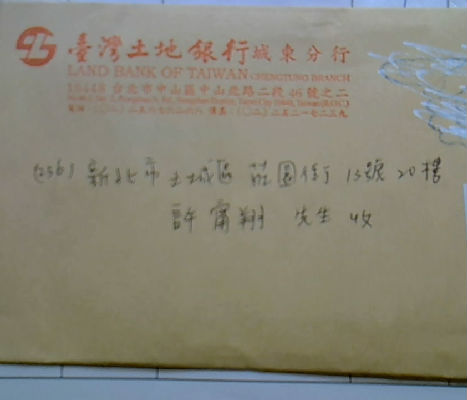 臺灣土地銀行城東分行
LAND BANK OF TAIWAN CHENGTUNG BRANCH
10448 台北市中山區中山北路二段46號之二
(236) 新北市土城區莊園街15號20樓
許甯翔 先生 收